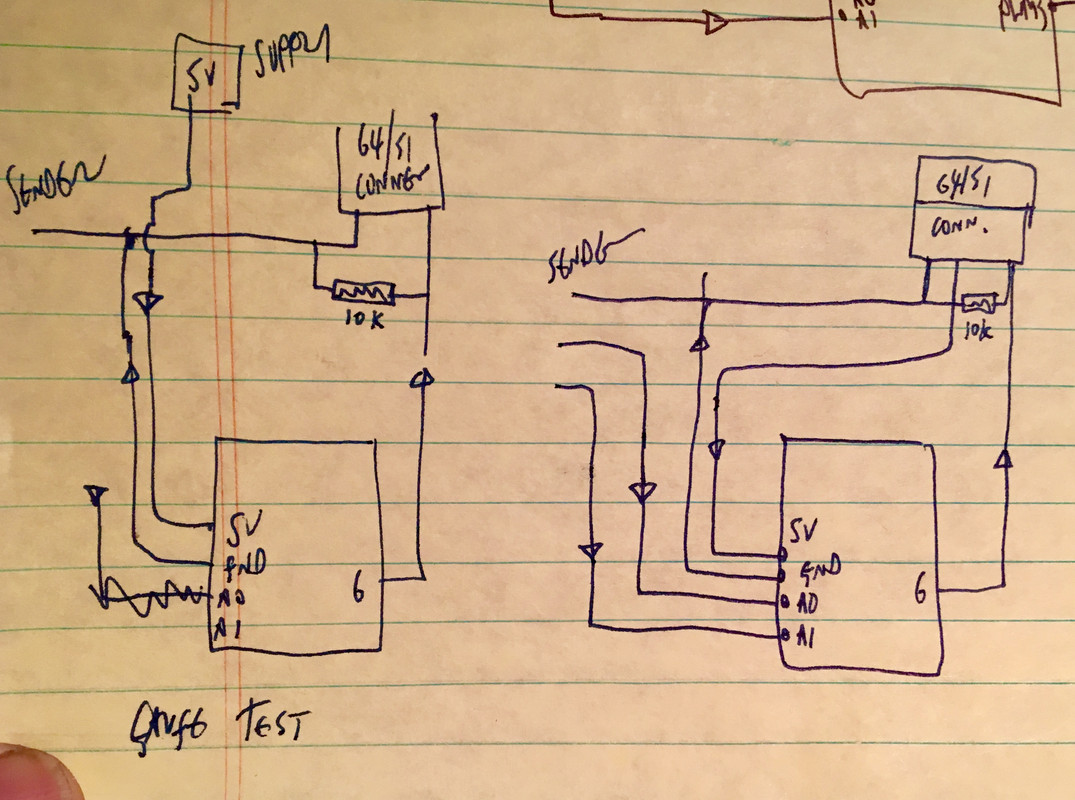 A0
A1
SUPPLY
5V
SENDER
64/S1
CONNE
10K
5V
GND
A0
A1
6
GAUGE TEST
64/S1
CONN.
SENDE
10K
5V
GND
A0
A1
6